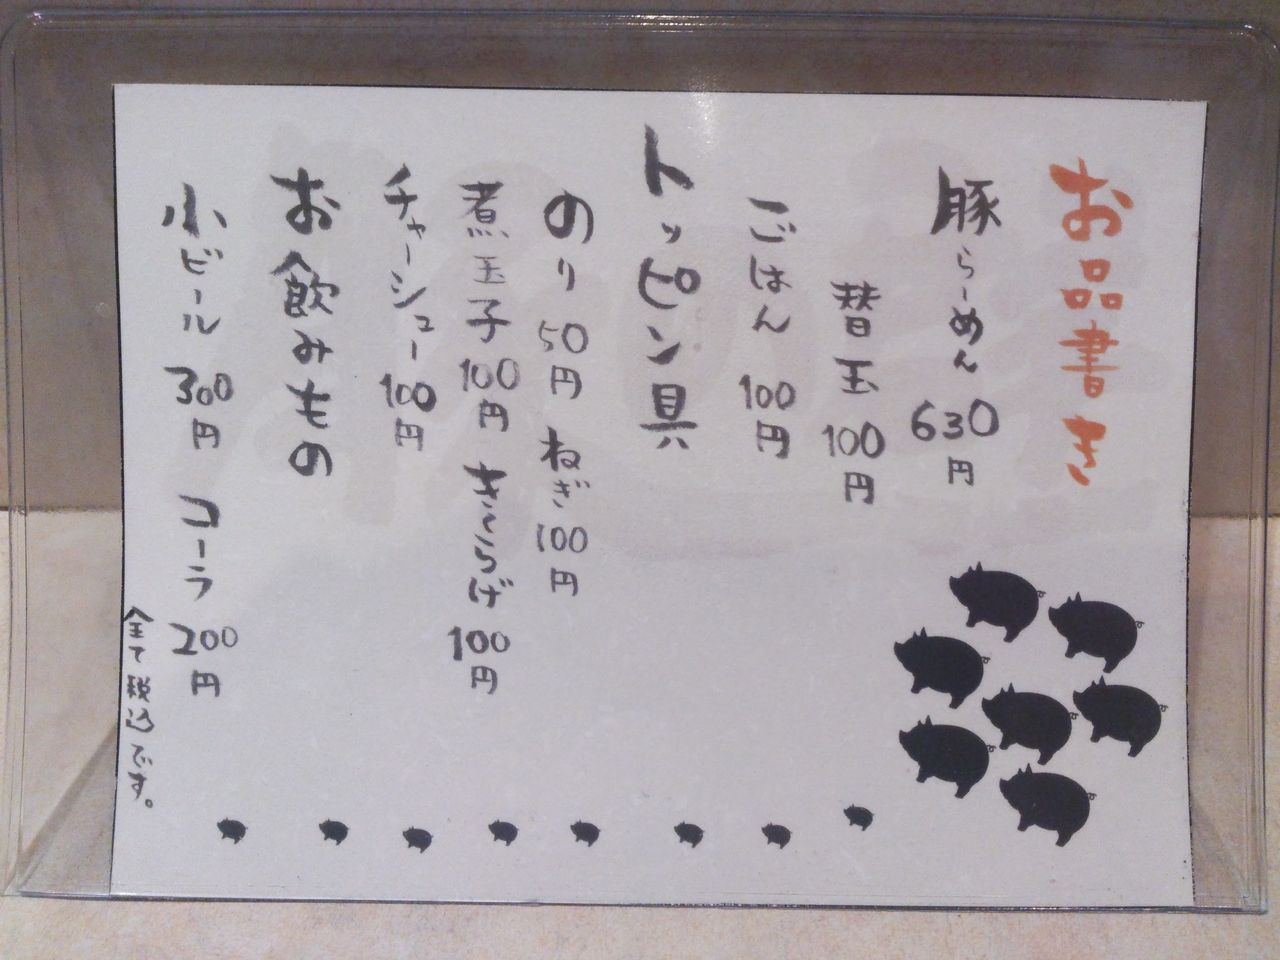 お品書き
豚らーめん 630円
替玉 100円
ごはん 100円
トッピン具
のり 50円 ねぎ 100円
煮玉子 100円 きくらげ 100円
チャーシュー 100円
お飲みもの
小ビール 300円 コーラ 200円
全て税込です。